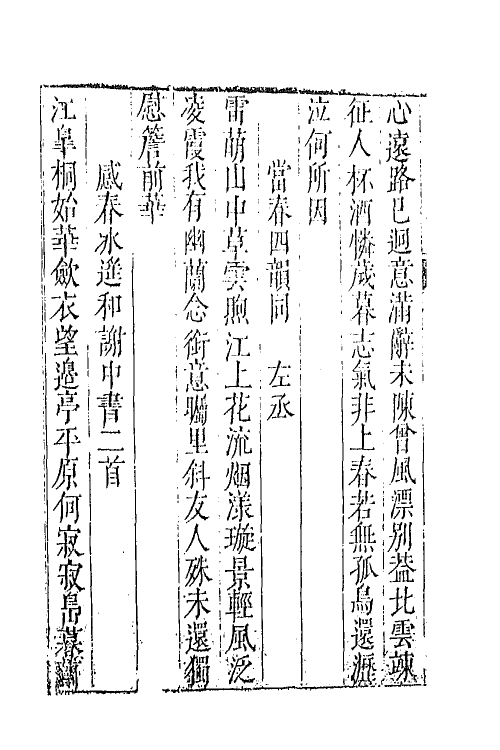 心遠路已迥意滿辭未陳曾風漂別蓋北雲竦
征人杯酒憐歲暮志氣非上春若無孤鳥還瀝
泣何所因
當春四韻同　左丞
雷萌山中草雲煦江上花流烟漾璇景輕風泛
凌霞我有幽蘭念銜意矚里斜友人殊未還獨
慰簷前華
感春冰遙和謝中書二首
江皐桐始華歛衣望邊亭平原何寂寂島暮蘭